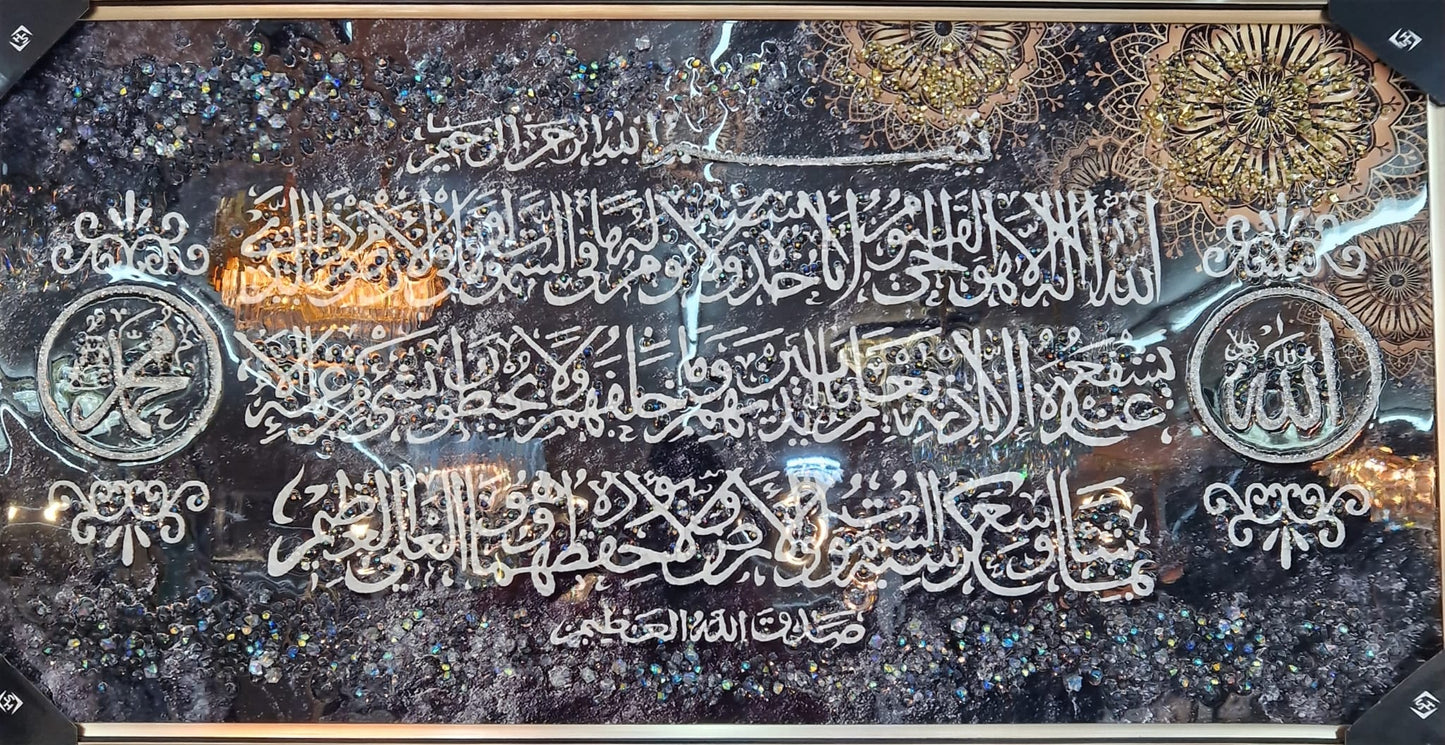 بسم الله الرحمن الرحيم
الله لا إله إلا هو الحي القيوم لا تأخذه سنة ولا نوم له ما في السموات وما في الأرض من ذا الذي
يشفع عنده إلا بإذنه يعلم ما بين أيديهم وما خلفهم ولا يحيطون بشيء من علمه إلا
بما شاء وسع كرسيه السموات والأرض ولا يؤده حفظهما وهو العلي العظيم
صدق الله العظيم
الله
محمد